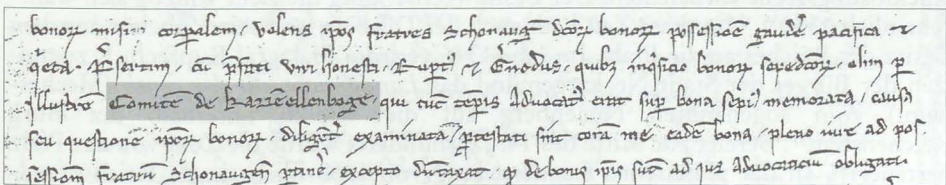 bonoꝝ misi corꝑalem · volens ip̄os fratres Schonauḡ dc̄oꝝ bonoꝝ possessiōe gauđe pacifica ⁊
q̄eta · P̄sertim · cū p̄fati viri honesti · Rup̄tꝰ ⁊ quibꝫ inq̄sicio bonoꝝ sepedc̄oꝝ · olim ꝑ
illustrē Comitē de Kazzēellenboge · qui tūc tēp̄is Advocatꝰ erat suꝑ bona sepiꝰ memorata · causa
seu questionē ip̄oꝝ bonoꝝ · diligent̄ examinata · ꝓtestati sint corā me · eadē bona · pleno iure ad pos
sessionē fratrū Schonaugēn ꝑtinē · excepto dūtaxat · ꝙ de bonis ip̄is sūt ad ius Advocaticiū obligatū